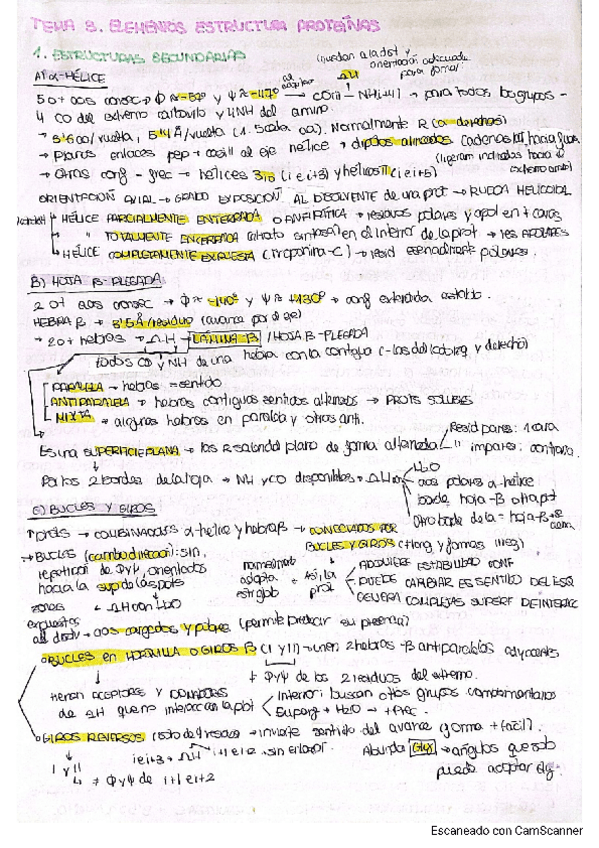 TEMA 3. ELEMENTOS ESTRUCTURA PROTEÍNAS
1. ESTRUCTURAS SECUNDARIAS
(quedan a la dist y orientación adecuada para formar)
A) α-HÉLICE
5 o + aas consec → Φ ≈ -57º y Ψ ≈ -47º al adoptar → CO(i) - NH(i+4) → para todos los grupos -
4 CO del extremo carboxilo y 4 NH del amino
→ 3'6 aa/vuelta, 5'4 Å/vuelta (1'5 cada aa). Normalmente R (α derechas)
→ Planos enlaces pep + casi // al eje hélice → dipolos alineados (cadenas lat hacia fuera
(ligeram inclinadas hacia extremo amino)
→ Otras conf - frec → hélices 3₁₀ (i e i+3) y hélices π (i e i+5)
ORIENTACIÓN AXIAL → GRADO EXPOSICIÓN AL DISOLVENTE de una prot → RUEDA HELICOIDAL
HÉLICE PARCIALMENTE ENTERRADA O ANFIPÁTICA → residuos polares y apol en ≠ caras
" TOTALMENTE ENTERRADA (citrato sintasa) en el interior de la prot → res APOLARES
HÉLICE COMPLETAMENTE EXPUESTA (Troponina-C) → resid esencialmente polares.
B) HOJA β-PLEGADA
2 o + aas consec → Φ ≈ -140º y Ψ ≈ +130º → conf extendida estable.
HEBRA β → 3'5 Å/residuo (avance por el eje)
→ 2 o + hebras → LÁMINA β / HOJA β-PLEGADA
todos CO y NH de una hebra con la contigua (- las del lado izq y derecho)
PARALELA → hebras = sentido
ANTIPARALELA → hebras contiguas sentidos alternados → PROTS SOLUBLES
MIXTA → algunas hebras en paralelo y otras anti.
Es una SUPERFICIE PLANA → los R salen del plano de forma alternada
Resid pares: 1 cara
" impares: contraria
Por los 2 bordes de la hoja → NH y CO disponibles
H₂O
aas polares α-hélice
borde hoja-β otra pt
Otro borde de la = hoja-β
C) BUCLES Y GIROS
Prots → COMBINACIONES α-hélice y hebra β → CONECTADOS POR
BUCLES Y GIROS (≠ long y formas irreg)
→ BUCLES (cambio direcc): sin
repetición de Φ y Ψ, orientados
hacia la sup de las prots
normalmente adopta est glob
Así, la prot
ADQUIERE ESTABILIDAD CONF
PUEDE CAMBIAR EL SENTIDO DEL ESQ
GENERA COMPLEJAS SUPERF DE INTERACC
zonas con H₂O
expuestas
al disolv → aas cargados y polares (permite predecir su presencia)
BUCLES en HORQUILLA O GIROS β (I y II) → unen 2 hebras-β antiparalelas adyacentes
≠ Φ y Ψ de los 2 residuos del extremo.
tienen ACEPTORES Y DONADORES
de que no interacc con la prot
Interior: buscan otros grupos complementarios
Superf → H₂O → + frec.
GIROS REVERSOS → invierte sentido del avance (forma + fácil).
i e i+3 → i+1 e i+2 sin enlazar.
I y II
≠ Φ y Ψ de i+1 e i+2
Abunda Gly → ángulos que solo
puede adoptar Gly.
Escaneado con CamScanner